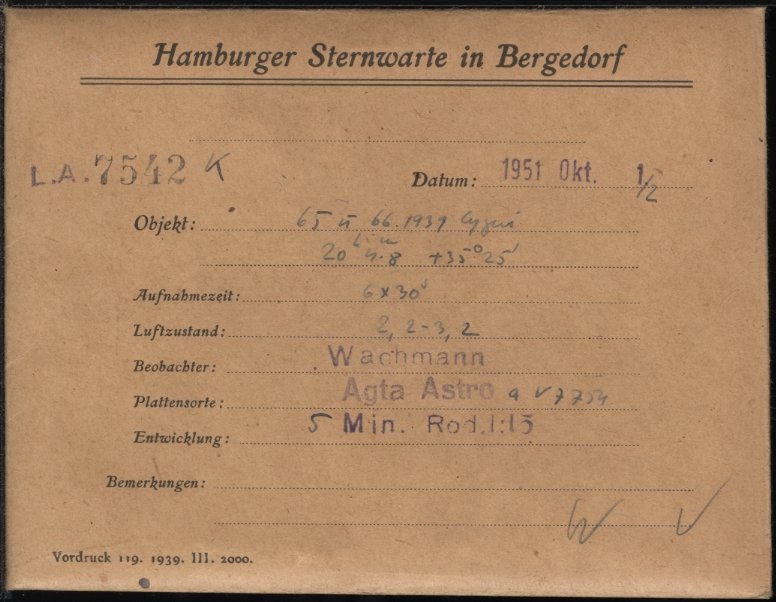 Hamburger Sternwarte in Bergedorf
L.A. 7542 K
Datum: 1951 Okt. 1/2
Objekt: 65 u 66.1939 Cygni
20 h 4.8 m +35° 25'
Aufnahmezeit: 6 x 30'
Luftzustand: 2, 2-3, 2
Beobachter: Wachmann
Plattensorte: Agfa Astro
Entwicklung: 5 Min. Rod. 1:15
Bemerkungen:
W
Vordruck 119. 1939. III. 2000.